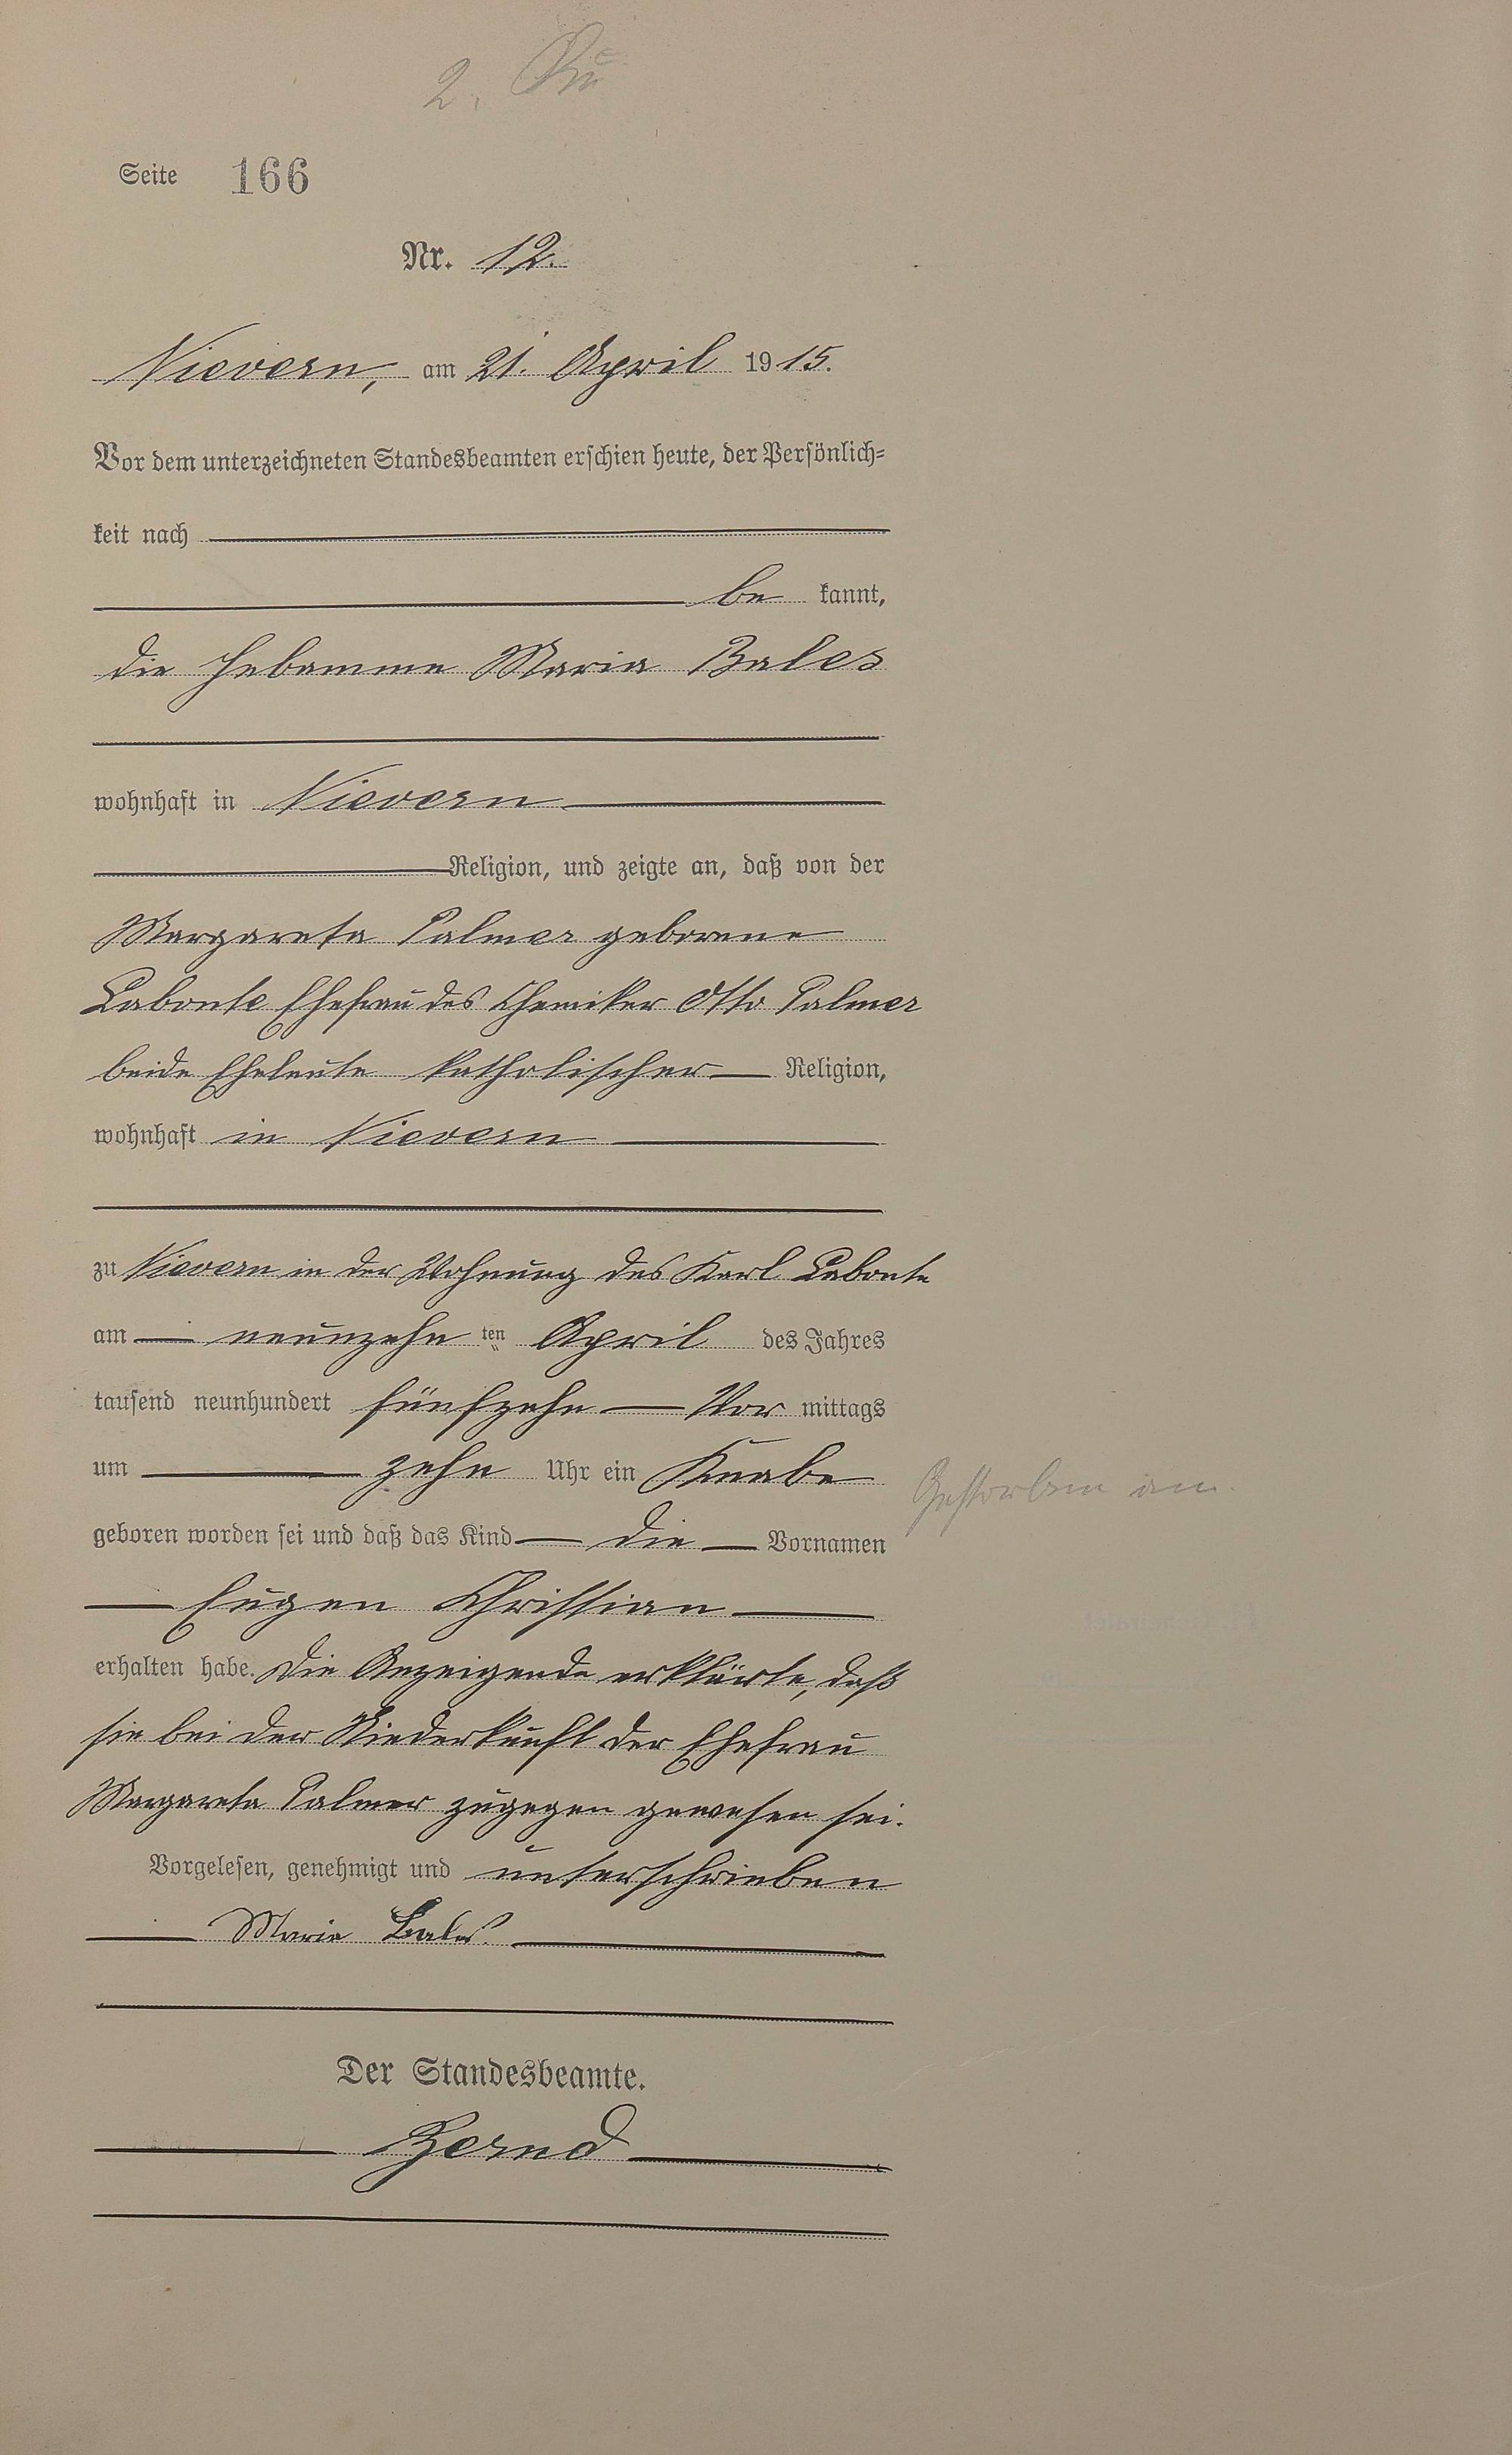 2.
Seite 166
Nr. 12.
Nievern, am 21. April 1915.
Vor dem unterzeichneten Standesbeamten erschien heute, der Persönlich-
keit nach
be kannt,
die Hebamme Maria Bales
wohnhaft in Nievern
Religion, und zeigte an, daß von der
Margareta Palmer geborene
Labonte Ehefrau des Chemiker Otto Palmer
beide Eheleute katholischer Religion,
wohnhaft in Nievern
zu Nievern in der Wohnung des Karl Labonte
am neunzehn ten April des Jahres
tausend neunhundert fünfzehn Vor mittags
um zehn Uhr ein Knabe
Gestorben am
geboren worden sei und daß das Kind die Vornamen
Eugen Christian
erhalten habe. Die Anzeigende erklärte, daß
sie bei der Niederkunft der Ehefrau
Margareta Palmer zugegen gewesen sei.
Vorgelesen, genehmigt und unterschrieben
Maria Bales.
Der Standesbeamte.
Zernd